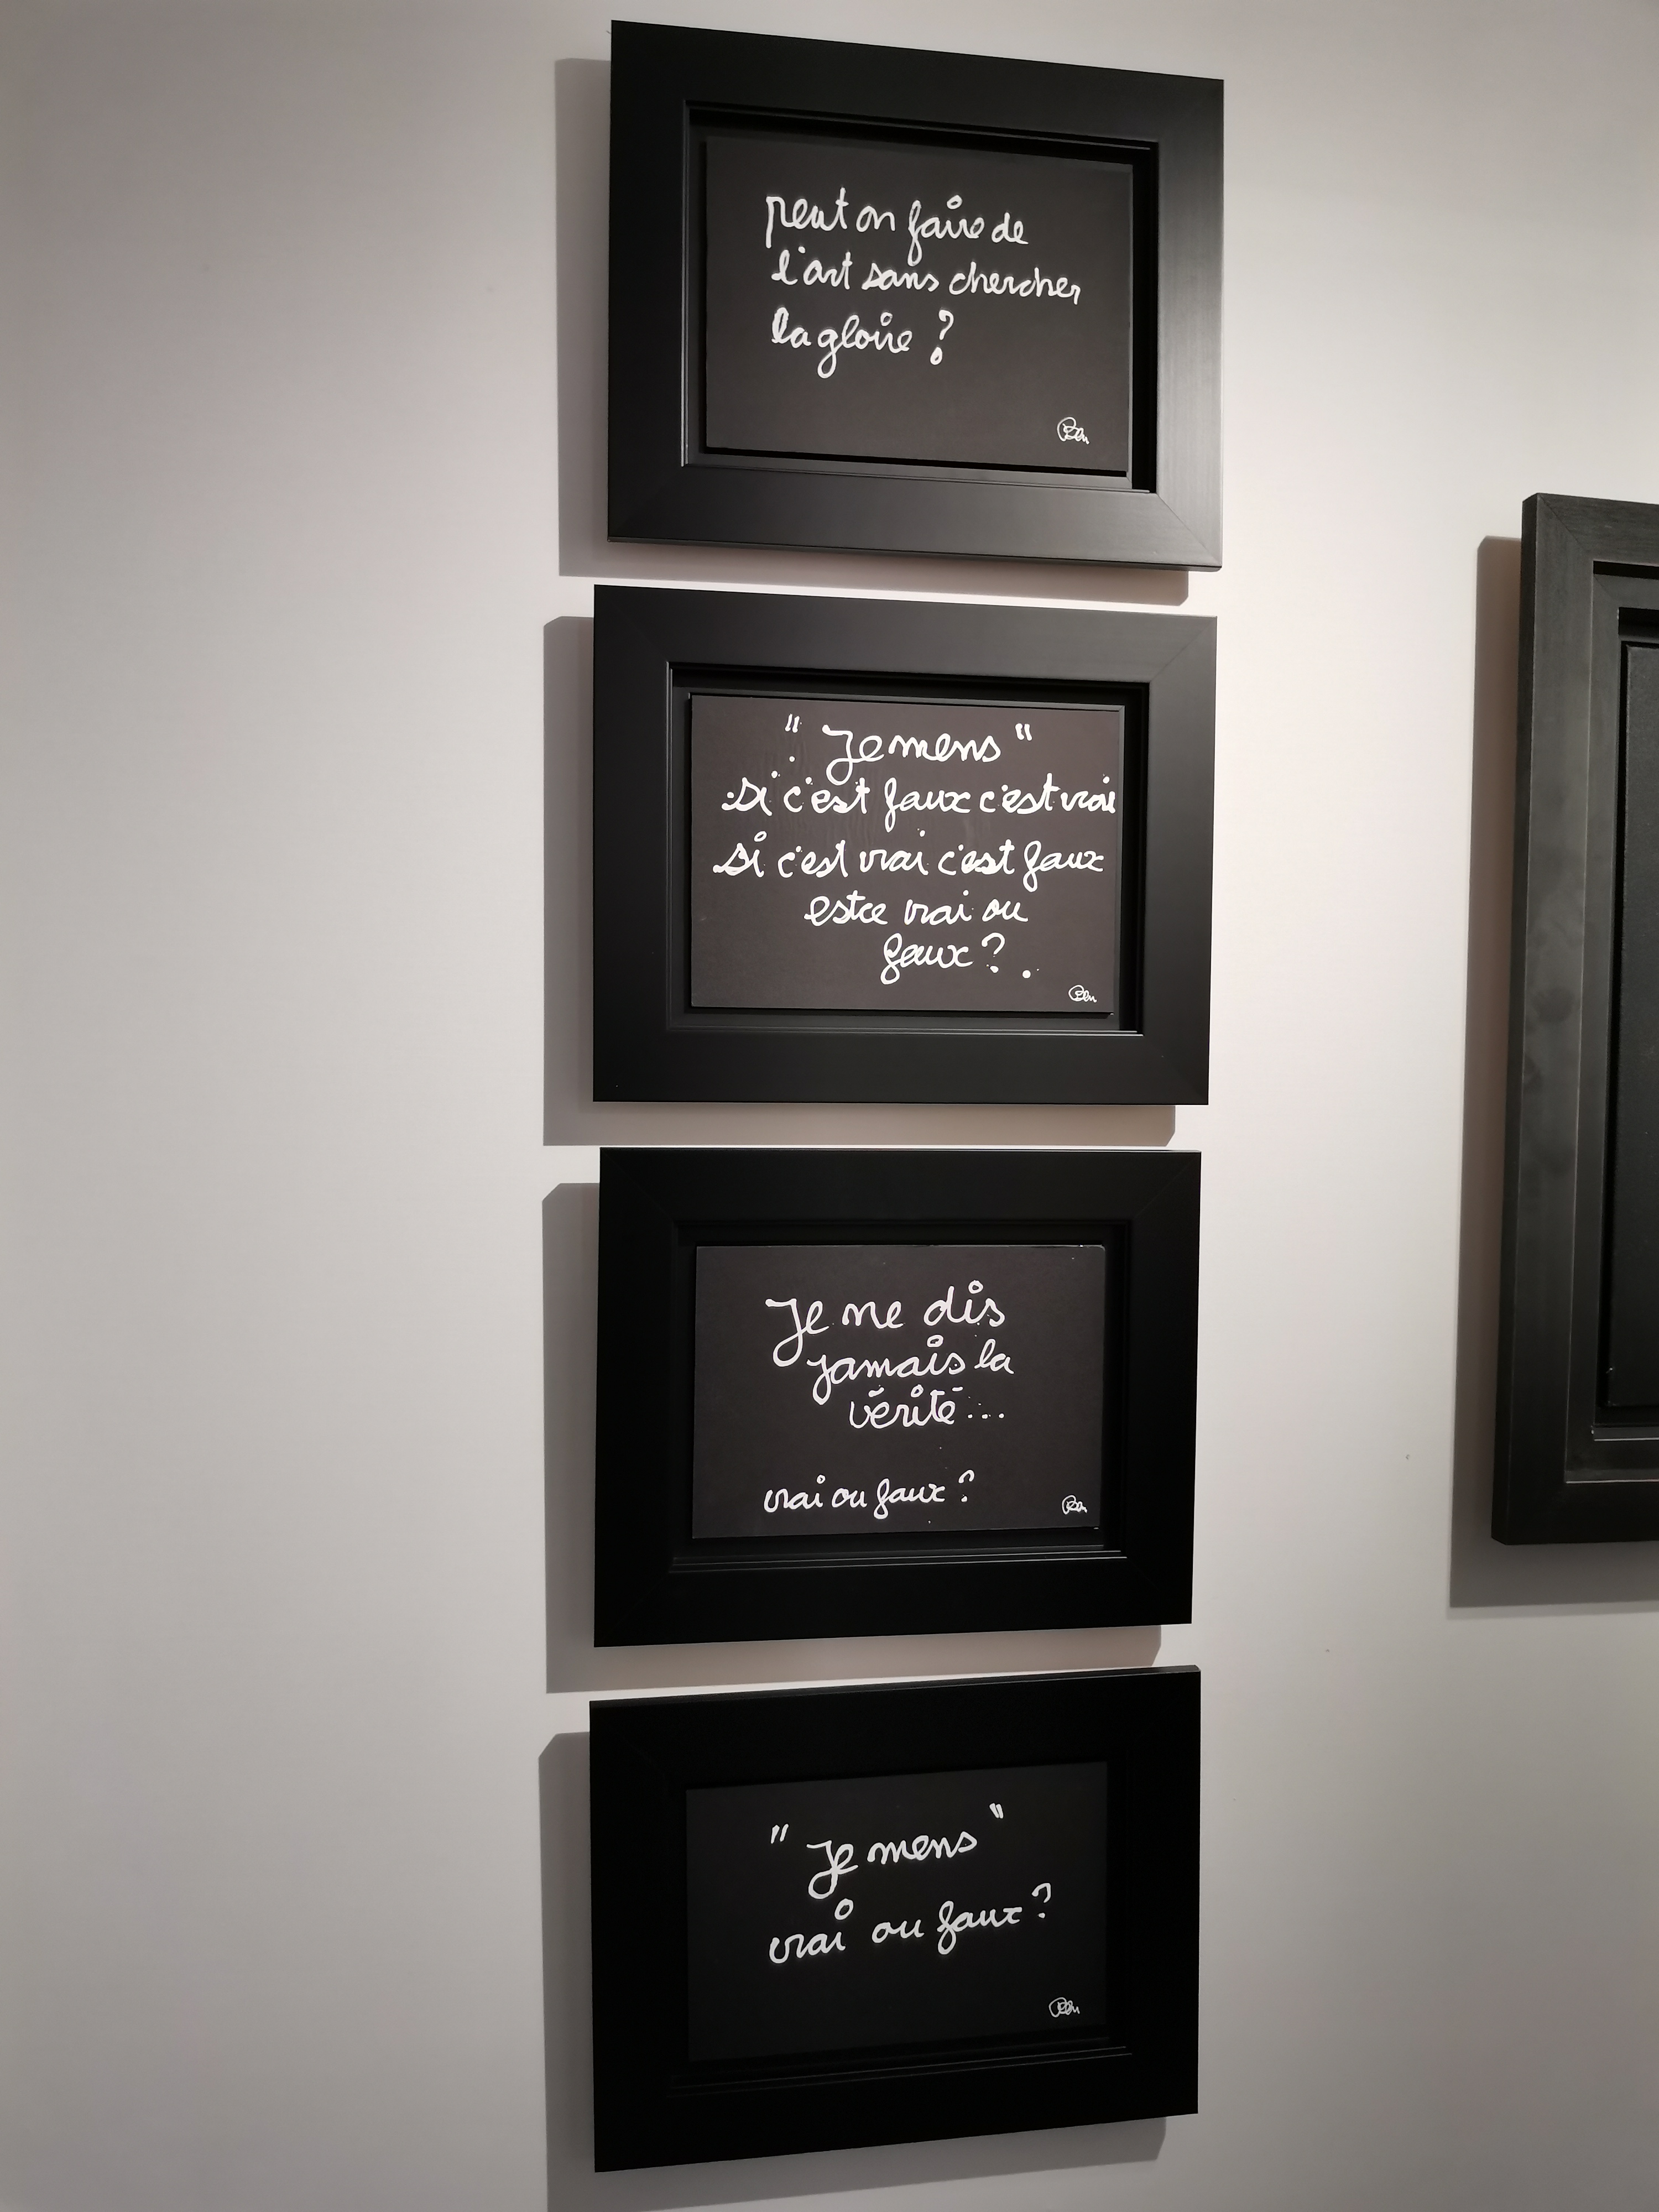 peut on faire de
l'art sans chercher
la gloire ?
Ben
"Je mens"
si c'est faux c'est vrai
si c'est vrai c'est faux
estce vrai ou
faux ?.
Ben
Je ne dis
jamais la
vérité...
vrai ou faux ?
Ben
"Je mens"
vrai ou faux ?
Ben